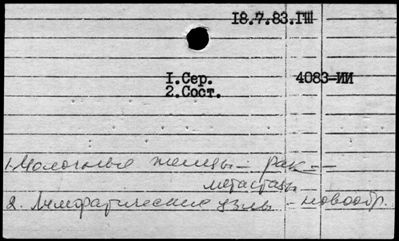 18.7.83.1Ш
I.Сер.
4083-ИИ
2.Сост.
1. Молочные железы - рак -
метастазы
2. Лимфатические узлы - новообр.